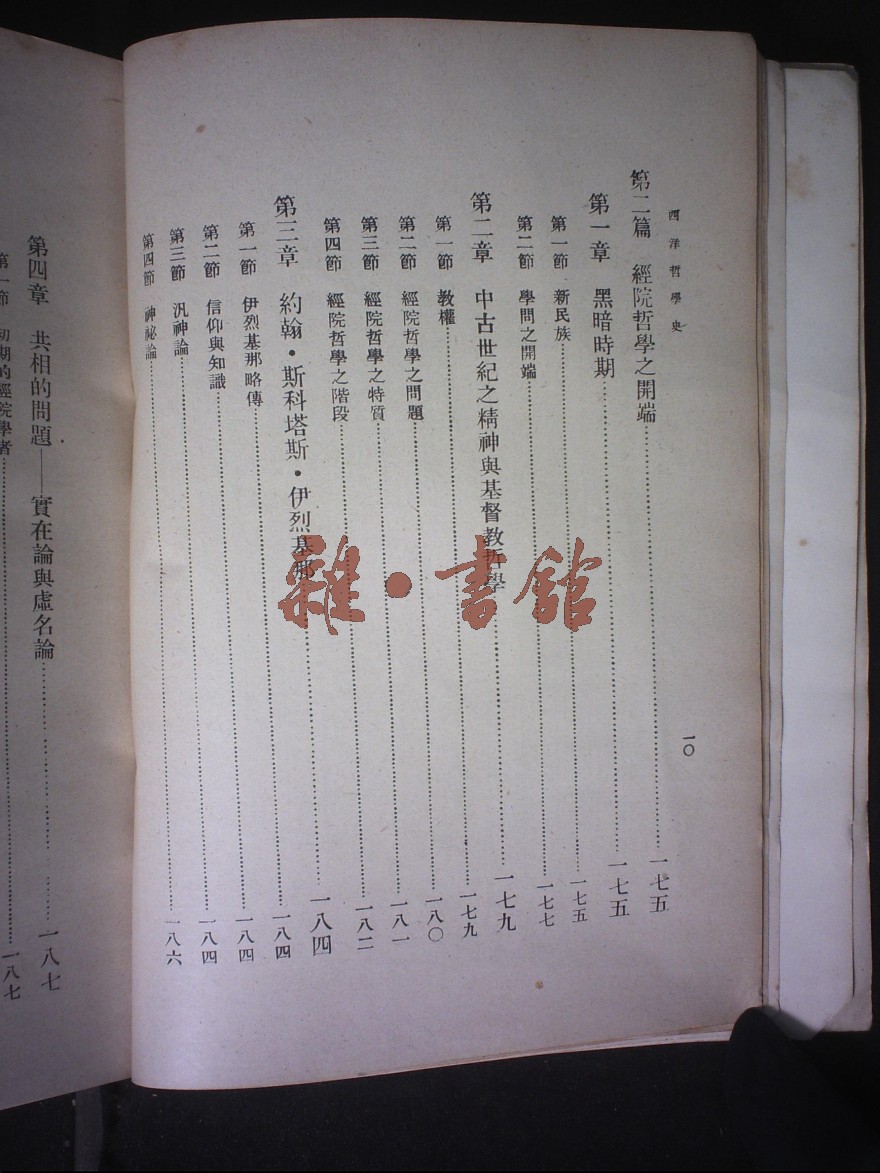 西洋哲學史
一〇
第二篇 經院哲學之開端……一七五
第一章 黑暗時期……一七五
第一節 新民族……一七五
第二節 學問之開端……一七七
第二章 中古世紀之精神與基督教哲學……一七九
第一節 教權……一七九
第二節 經院哲學之問題……一八〇
第三節 經院哲學之特質……一八一
第四節 經院哲學之階段……一八二
第三章 約翰・斯科塔斯・伊烈基那……一八四
第一節 伊烈基那略傳……一八四
第二節 信仰與知識……一八四
第三節 汎神論……一八四
第四節 神祕論……一八六
第四章 共相的問題——實在論與虛名論……一八七
第一節 初期的經院學者……一八七
雜・書館